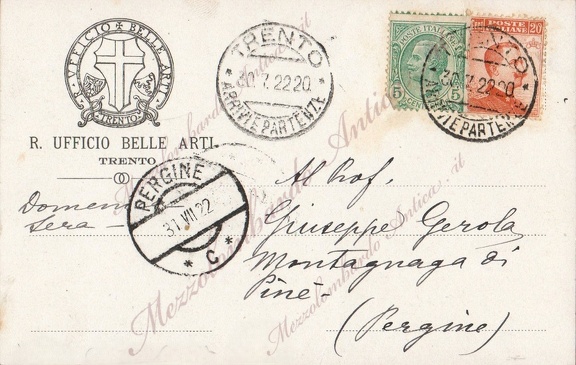 UFFICIO BELLE ARTI
TRENTO
R. UFFICIO BELLE ARTI
TRENTO
TRENTO
30.7.22 20
ARRIVI E PARTENZE
POSTE ITALIANE
5 5
POSTE ITALIANE 20
TRENTO
30.7.22 20
ARRIVI E PARTENZE
PERGINE
31 VII 22
* C *
Domenica
sera -
Al Prof.
Giuseppe Gerola
Montagnaga di
Piné -
(Pergine)
Mezzolombardo Antica.it
Mezzolombardo Antica.it